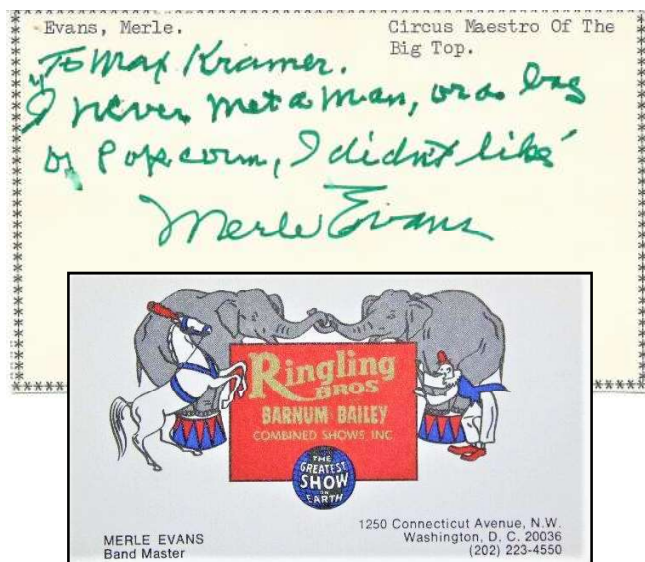 Evans, Merle.
Circus Maestro Of The
Big Top.
"To Max Kramer.
I never met a man, or a bag
of Popcorn, I didn't like"
Merle Evans
Ringling
BROS
BARNUM BAILEY
COMBINED SHOWS, INC
THE
GREATEST
SHOW
ON
EARTH
MERLE EVANS
Band Master
1250 Connecticut Avenue, N.W.
Washington, D. C. 20036
(202) 223-4550